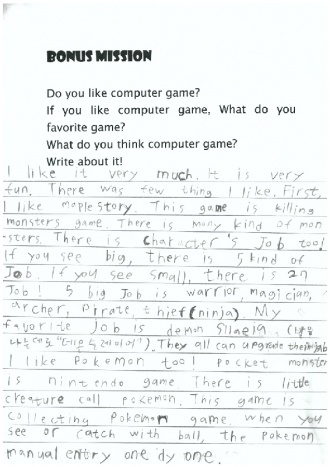 BONUS MISSION
Do you like computer game?
If you like computer game, What do you
favorite game?
What do you think computer game?
Write about it!
I like it very much. It is very
fun, There was few thing I like. First,
I like maple story. This game is killing
monsters game. There is many kind of mon
-sters. There is character's Job too!
If you see big, there is 5 kind of
Job. If you see small, there is 27
Job! 5 big Job is warrior, magician,
archer, pirate, thief(ninja). My
favorite Job is demon
나는대로 "데몬슬레이어"). They all can upgrade their job
I like Pokemon too! pocket monster
is nintendo game There is little
creature call pokemon. This game is
collecting Pokemon game when you
see or catch with ball, the Pokemon
manual entry one dy one.